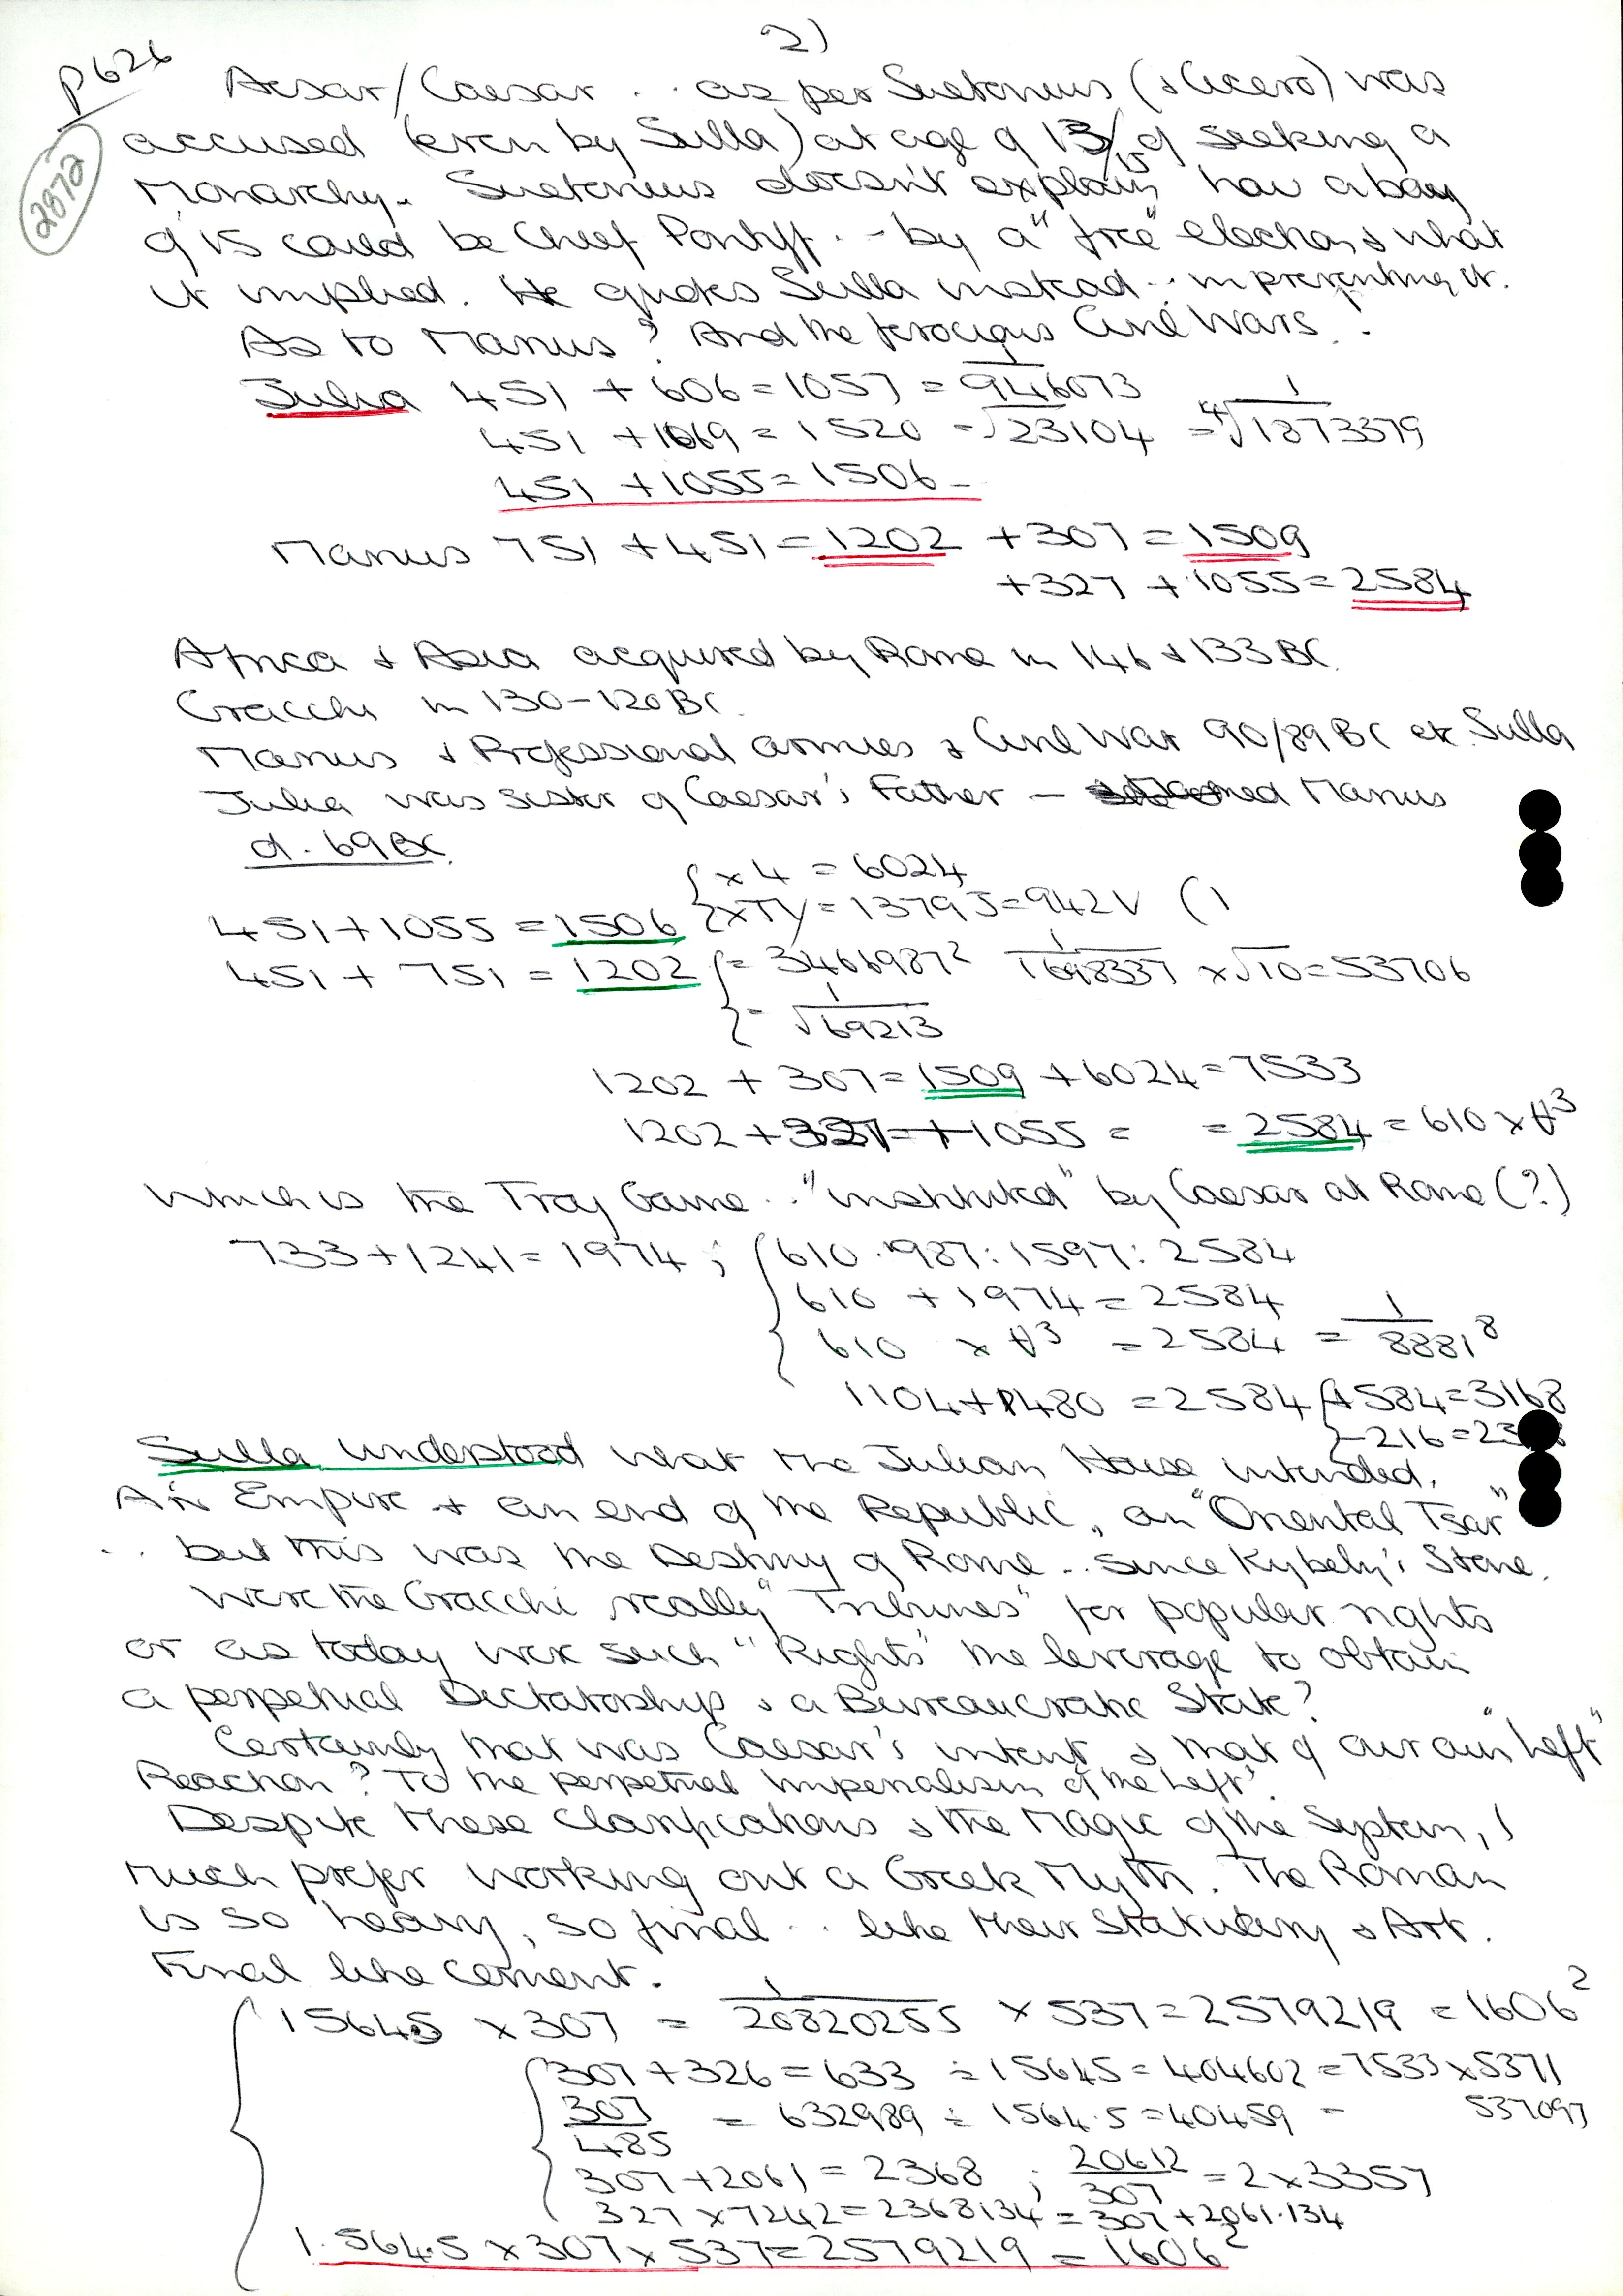 2)
p626
2872
Aesar/Caesar .. as per Suetonius (& Cicero) was
accused (even by Sulla) at age of 13/15 of seeking a
Monarchy. Suetonius doesn't explain how a boy
of 15 could be Chief Pontiff .. by a "free" election & what
it implied. He quotes Sulla instead .. in preventing it.
As to Marius? And the ferocious Civil Wars!
Julia 451 + 606 = 1057 = 1/946073
451 + 1069 = 1520 = √23104 = ⁴√1/1873379
451 + 1055 = 1506 -
Marius 751 + 451 = 1202 + 307 = 1509
+ 327 + 1055 = 2584
Africa & Asia acquired by Rome in 146 & 133 BC.
Gracchi in 130-120 BC.
Marius & Professional armies & Civil War 90/89 BC etc. Sulla
Julia was sister of Caesar's Father - Marius
d. 69 BC.
{ x 4 = 6024
451 + 1055 = 1506 { x TY = 1379 J = 942 V (1
451 + 751 = 1202 { = 3466987² 1/1698337 x √10 = 53706
{ = 1/√69213
1202 + 307 = 1509 + 6024 = 7533
1202 + 327 + 1055 = = 2584 = 610 x ϑ³
Which is the Troy Game .. "instituted" by Caesar at Rome (?)
733 + 1241 = 1974 ; { 610 . 987 : 1597 : 2584
610 + 1974 = 2584
610 x ϑ³ = 2584 = 1/8881⁸
1104 + 1480 = 2584 { + 584 = 3168
{ - 216 = 23
Sulla understood what the Julian House intended.
An Empire & an end of the Republic, an "Oriental Tsar"
.. but this was the Destiny of Rome .. since Kybely's Stone.
Were the Gracchi really "Tribunes" for popular rights
or as today were such "Rights" the leverage to obtain
a perpetual Dictatorship & a Bureaucratic State?
Certainly that was Caesar's intent & that of our own "Left"
Reaction? To the perpetual Imperialism of the Left'.
Despite these Clarifications & the Magic of the System, I
much prefer working out a Greek Myth. The Roman
is so heavy, so final .. like their Statuary & Art.
Final like cement.
{ 15645 x 307 = 1/20820255 x 537 = 2579219 = 1606²
{ 307 + 326 = 633 ÷ 15645 = 404602 = 7533 x 5371
307/485 = 632989 ÷ 1564.5 = 40459 - 537097
307 + 2061 = 2368 ; 20612/307 = 2 x 3357
327 x 7242 = 2368134 = 307 + 2061.134
1.564.5 x 307 x 537 = 2579219 = 1606²